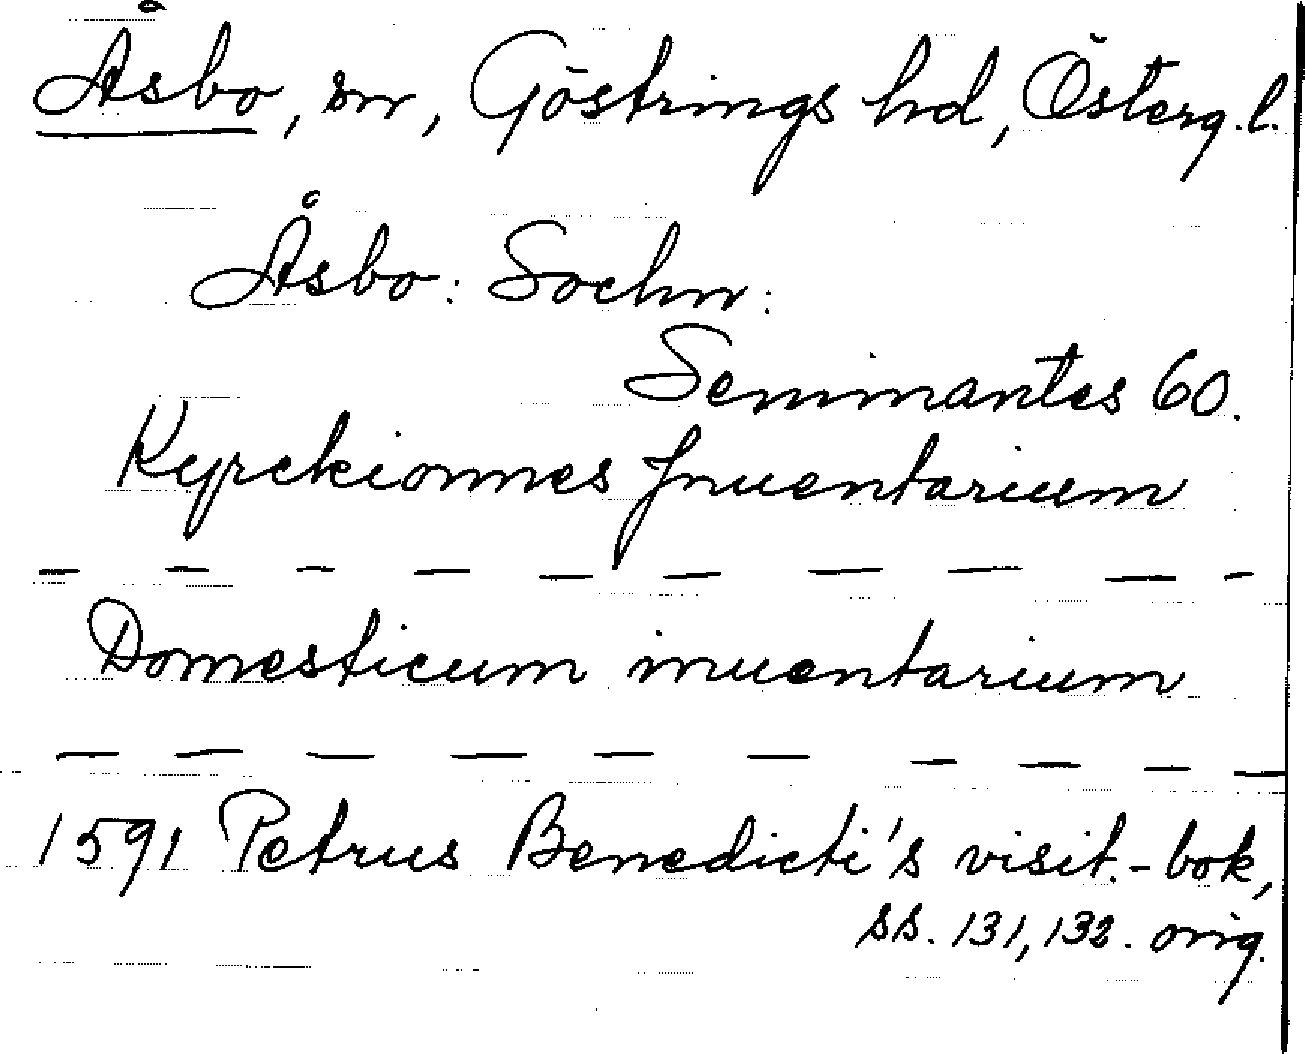 Åsbo, sn, Göstrings hd, Österg. l.
Åsbo: Sochn:
Seminantes 60.
Kyrckionnes Jnuentarium
— — — — — — — — — —
Domesticum inuentarium
— — — — — — — — — —
1591 Petrus Benedicti's visit.-bok,
ss. 131, 132. orig.